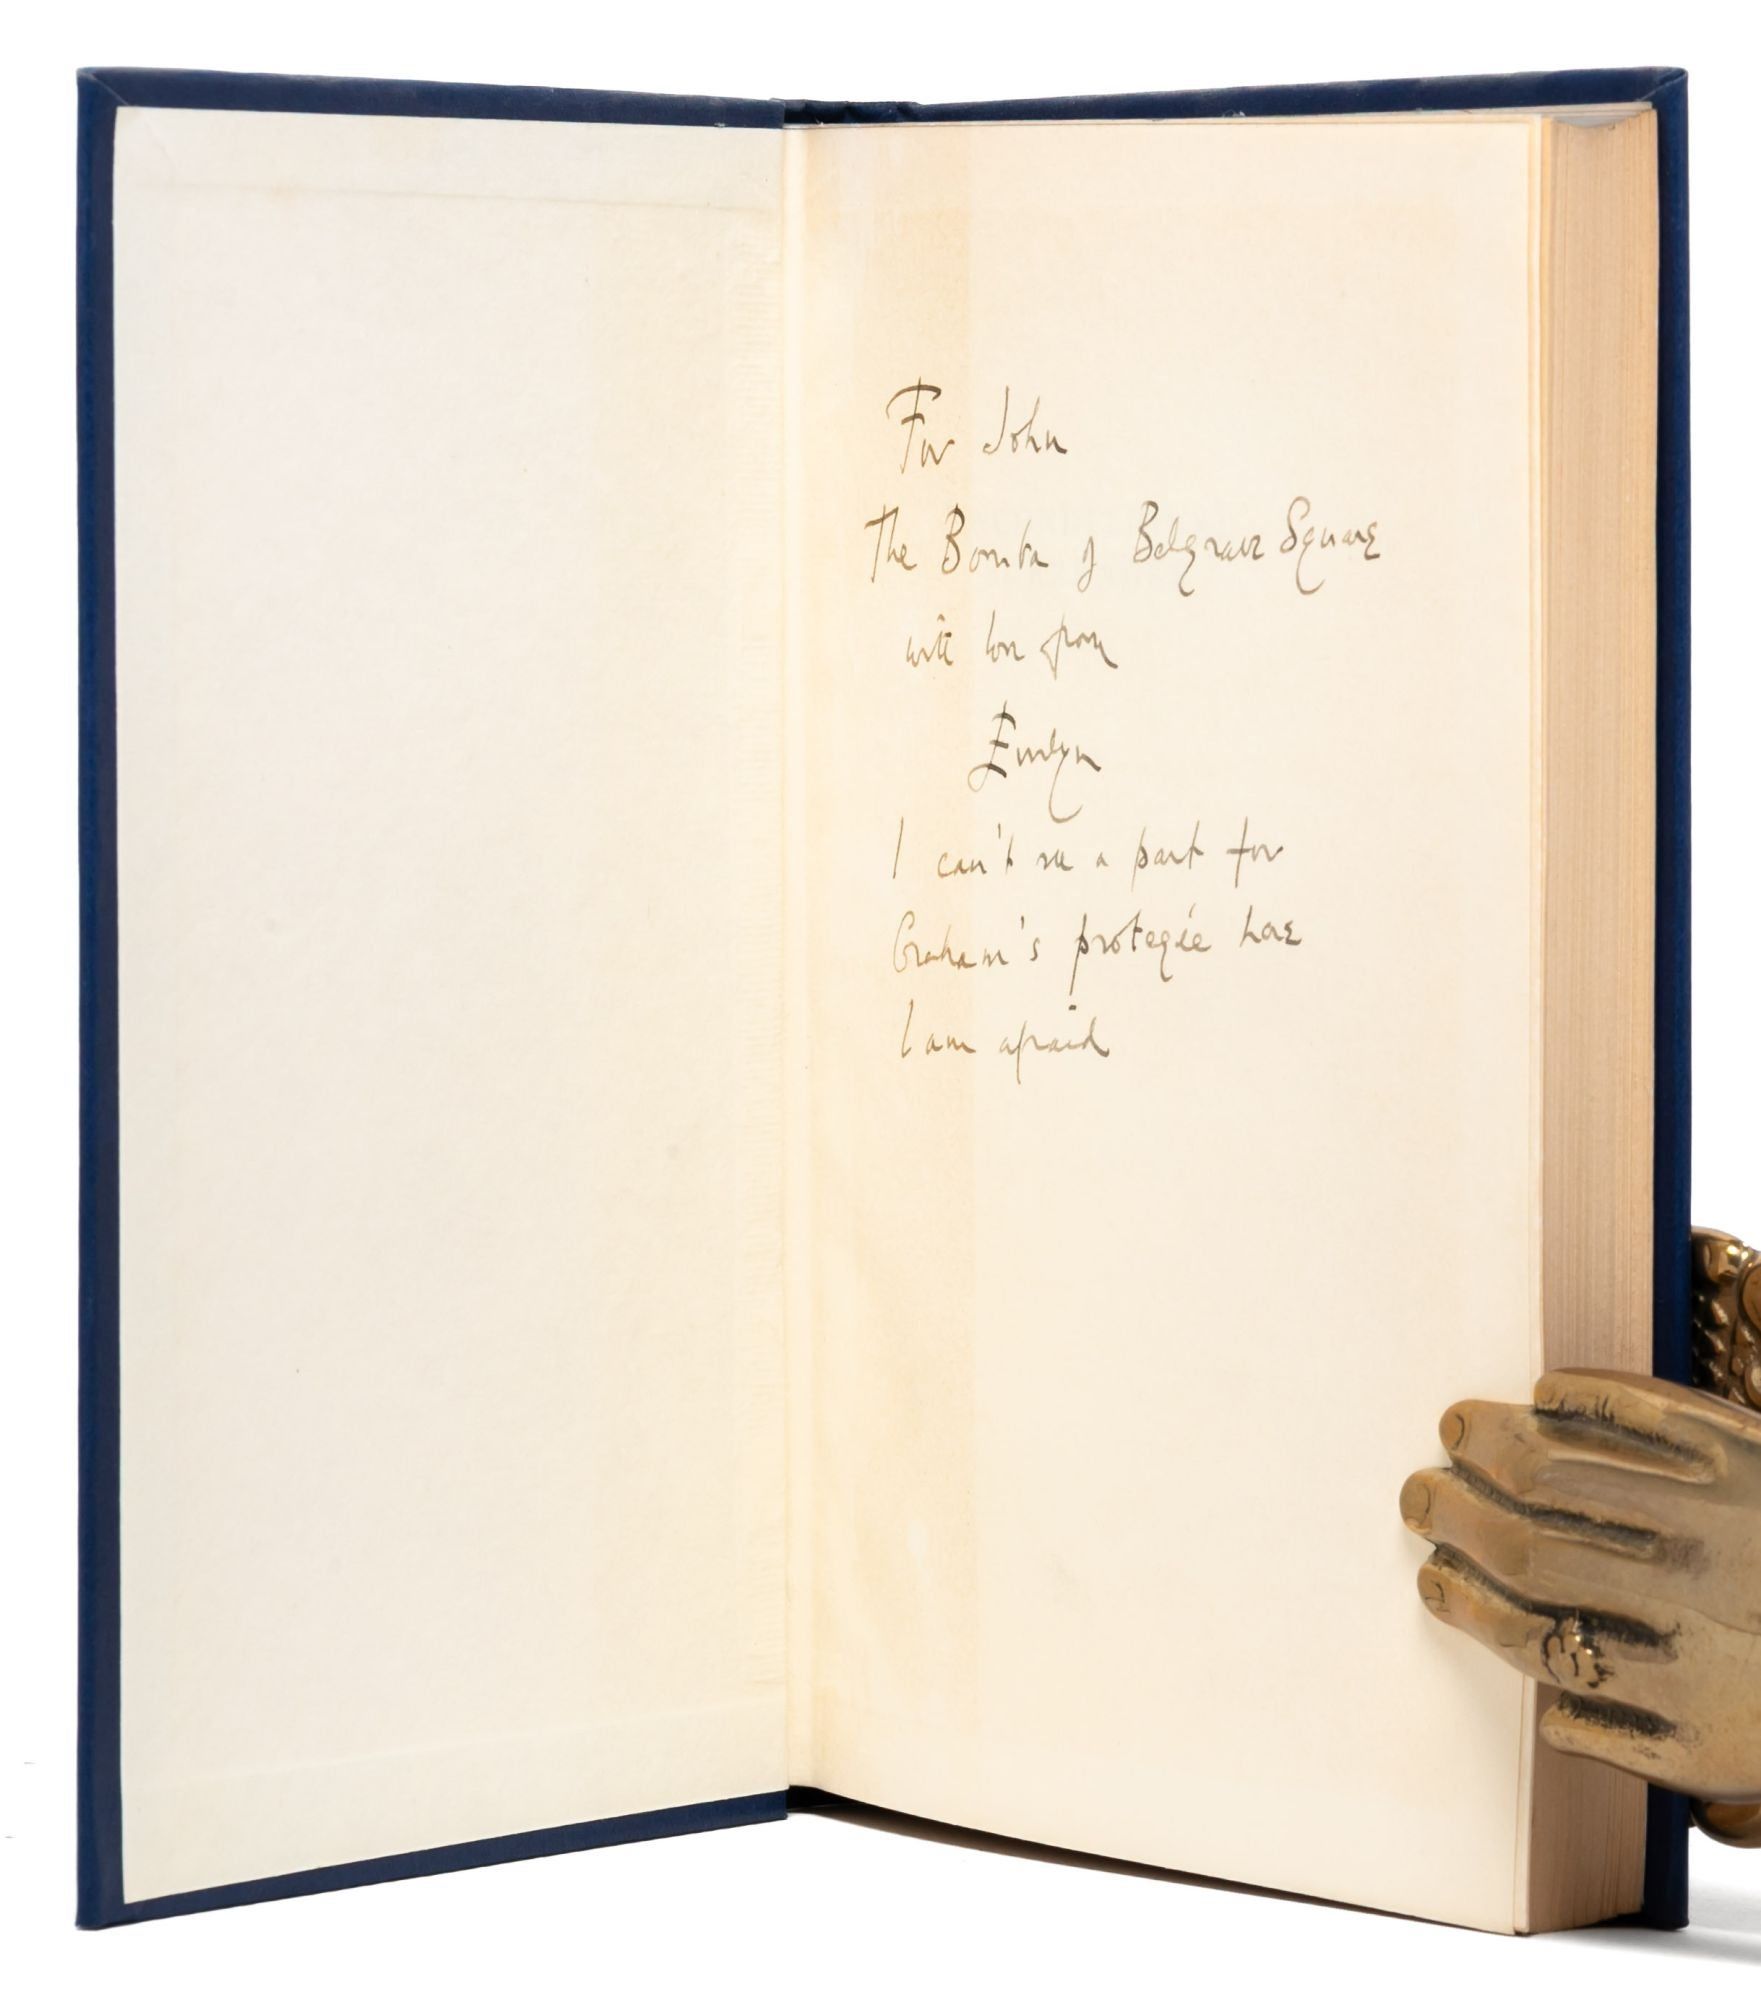 For John
The of Belgrave Square
with love from
Evelyn
I can't see a part for
Graham's protegée here
I am afraid